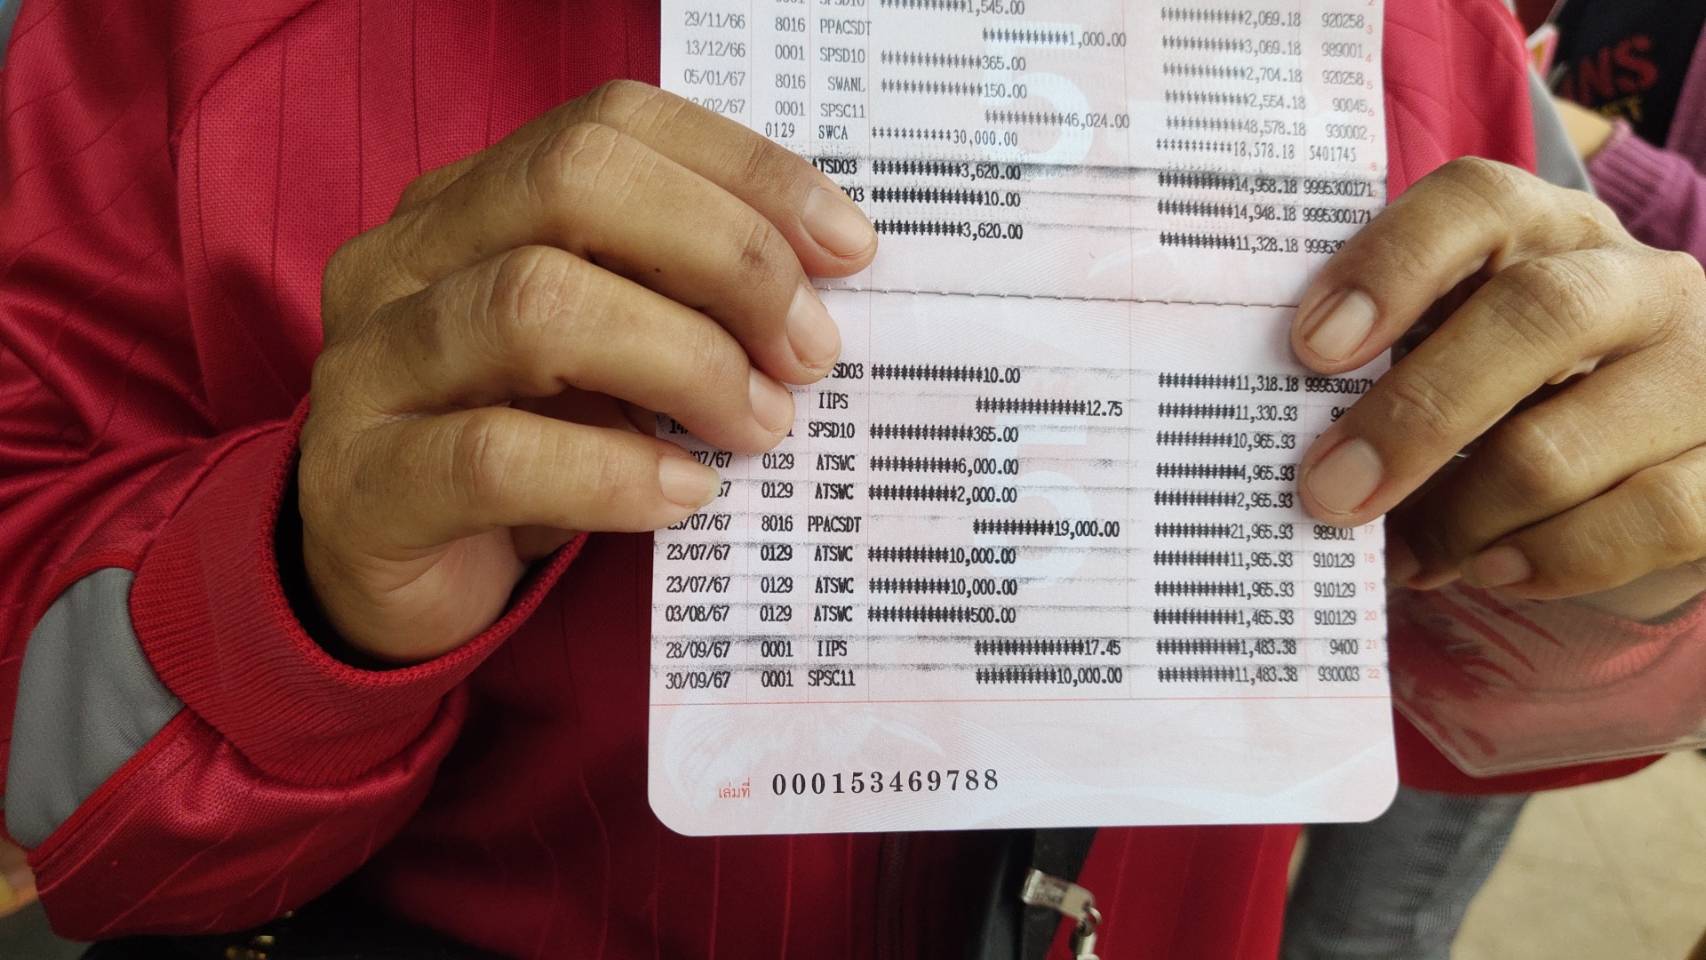 1,545.00 2,069.18 920258 3
29/11/66 8016 PPACSDT 1,000.00 3,069.18 989001 4
13/12/66 0001 SPSD10 365.00 2,704.18 920258 5
05/01/67 8016 SWANL 150.00 2,554.18 90045 6
02/67 0001 SPSC11 46,024.00 48,578.18 930002 7
0129 SWCA 30,000.00 18,578.18 5401745 8
ATSD03 3,620.00 14,958.18 9995300171
03 10.00 14,948.18 9995300171
3,620.00 11,328.18 99953
SD03 10.00 11,318.18 9995300171
IIPS 12.75 11,330.93 94
14 1 SPSD10 365.00 10,965.93
07/67 0129 ATSWC 6,000.00 4,965.93
67 0129 ATSWC 2,000.00 2,965.93
/07/67 8016 PPACSDT 19,000.00 21,965.93 989001 17
23/07/67 0129 ATSWC 10,000.00 11,965.93 910129 18
23/07/67 0129 ATSWC 10,000.00 1,965.93 910129 19
03/08/67 0129 ATSWC 500.00 1,465.93 910129 20
28/09/67 0001 IIPS 17.45 1,483.38 9400 21
30/09/67 0001 SPSC11 10,000.00 11,483.38 930003 22
เล่มที่ 000153469788